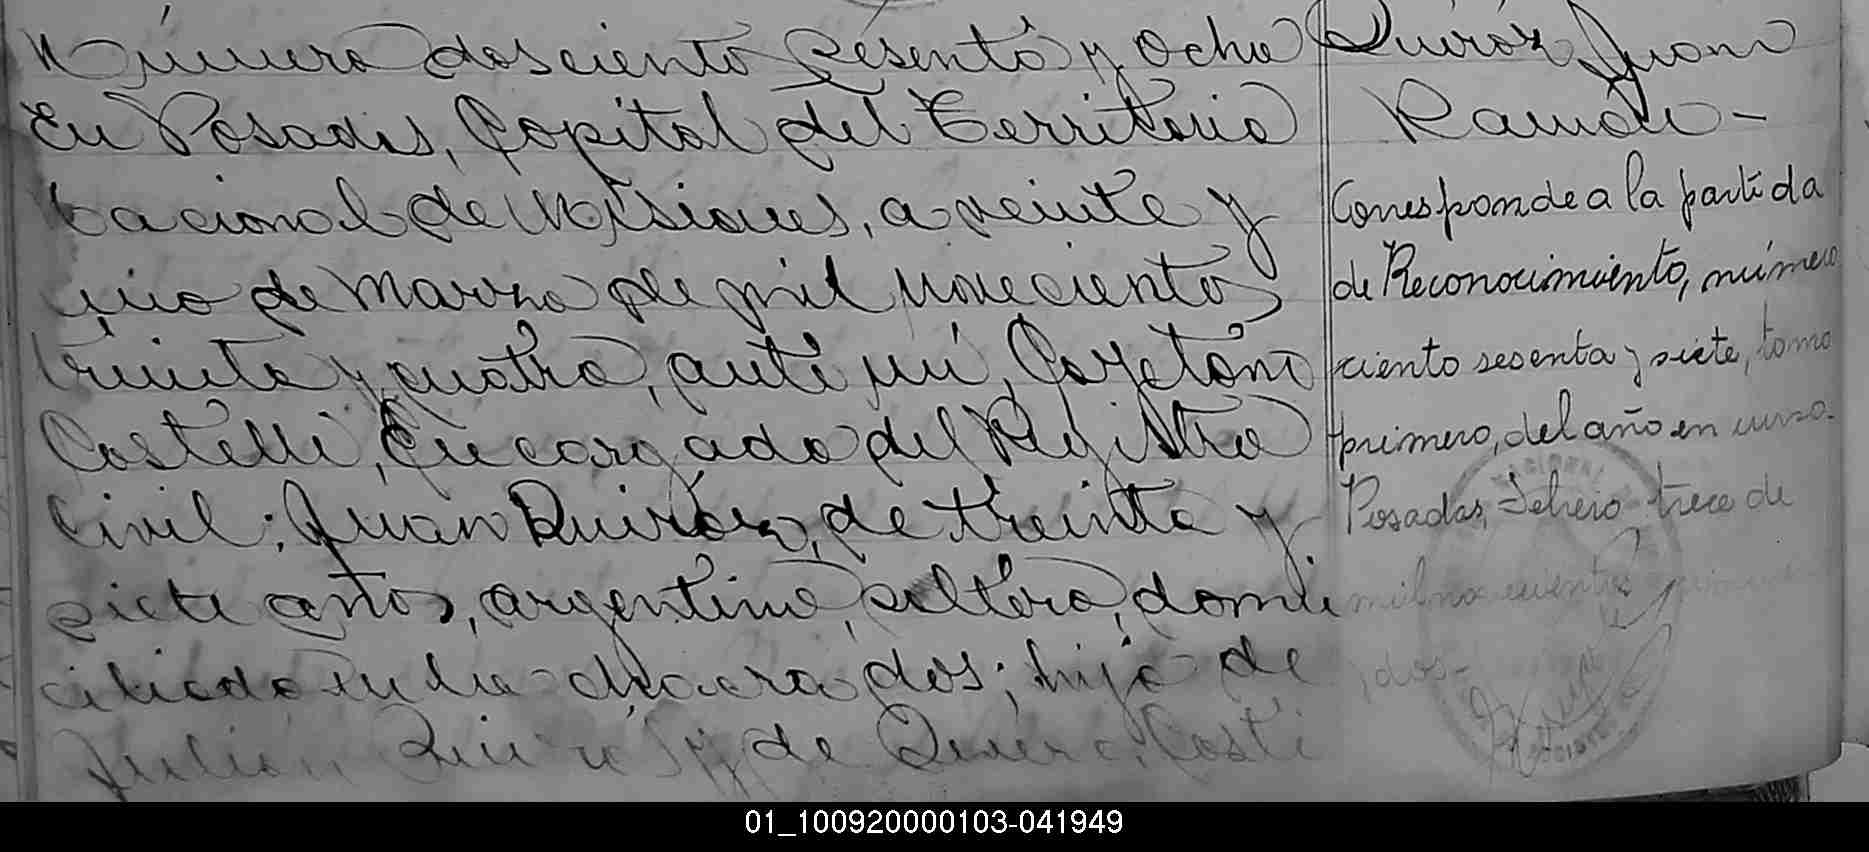 Número doscientos sesenta y ocho
En Posadas, Capital del Territorio
Nacional de Misiones, a veinte y
uno de Marzo de mil novecientos
treinta y cuatro, ante mí, Cayetano
Castelli, Encargado del Registro
Civil; Juan Quiróz, de treinta y
siete años, argentino, soltero, domi
ciliado en la chacra dos; hijo de
Julián Quiróz y de
Quiróz Juan
Ramón -
Corresponde a la partida
de Reconocimiento, número
ciento sesenta y siete, tomo
primero, del año en curso.
Posadas, Febrero trece de
mil novecientos
y dos-
01_100920000103-041949